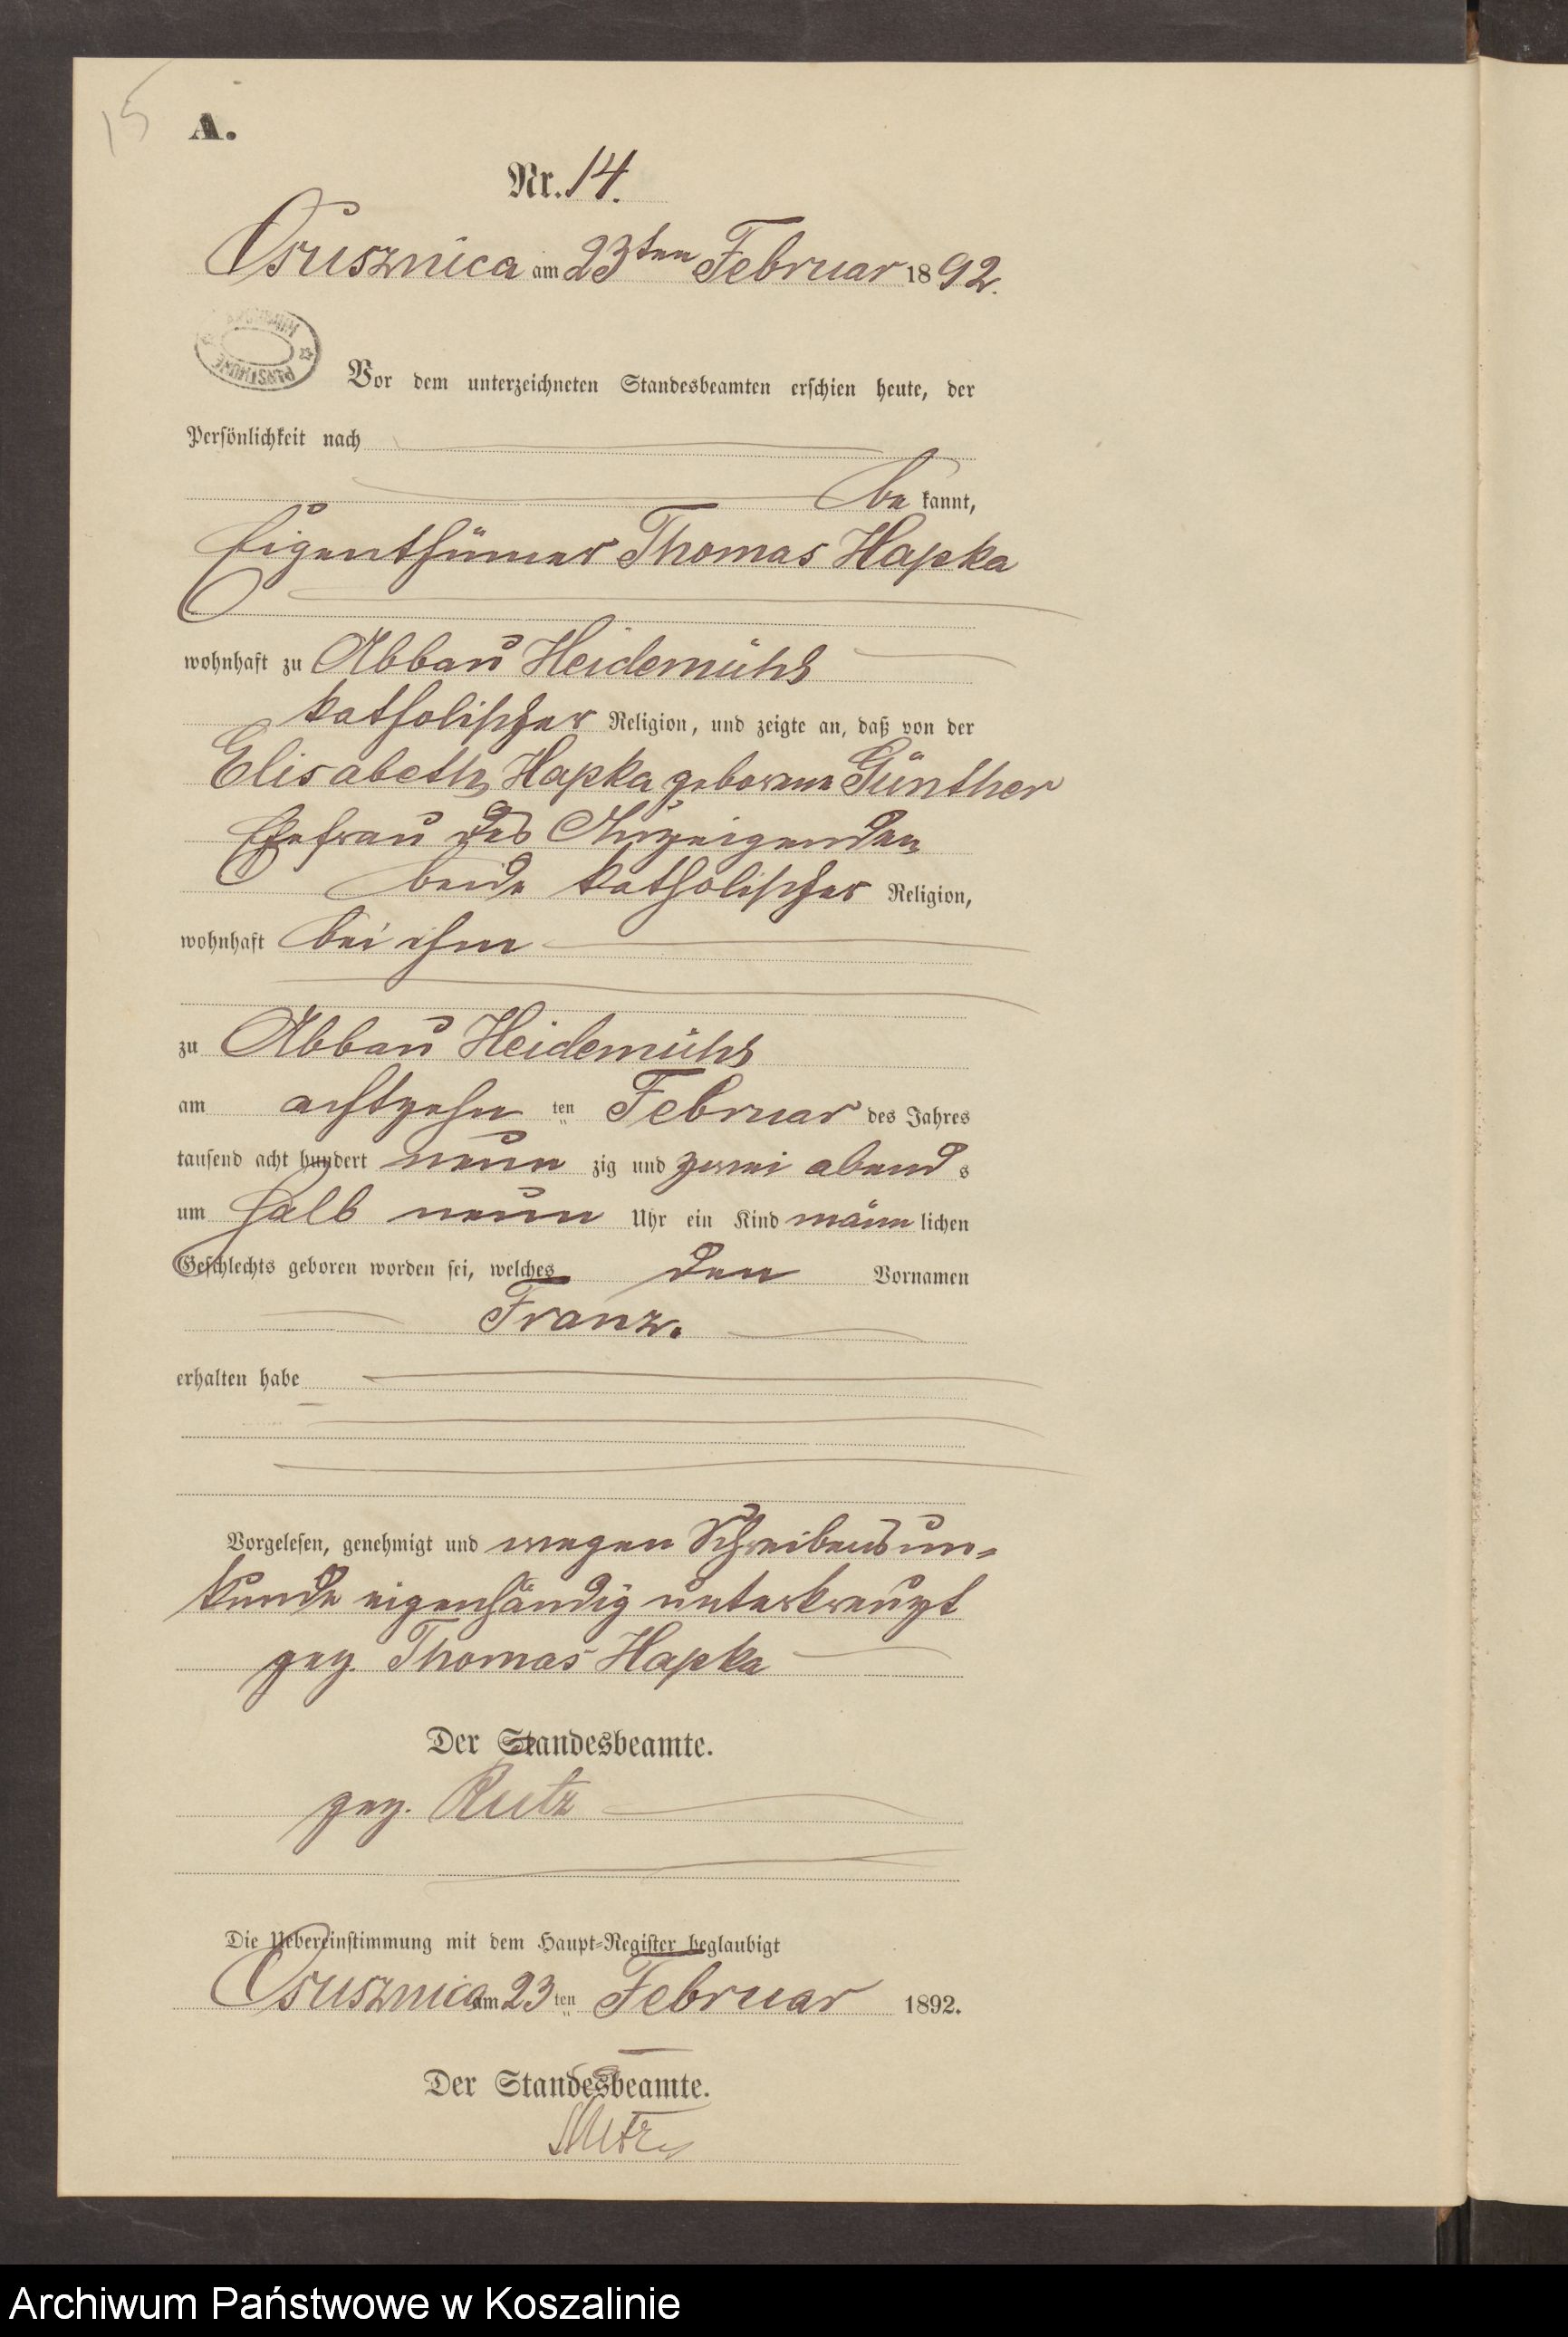 15
A.
Nr. 14.
Osusznica am 23ten Februar 1892.
Vor dem unterzeichneten Standesbeamten erschien heute, der
Persönlichkeit nach
be kannt,
Eigenthümer Thomas Hapka
wohnhaft zu Abbau Heidemühl
katholischer Religion, und zeigte an, daß von der
Elisabeth Hapka geborene Günther
Ehefrau des Anzeigenden
beide katholischer Religion,
wohnhaft bei ihm
zu Abbau Heidemühl
am achtzehn ten Februar des Jahres
tausend acht hundert neun zig und zwei abend s
um halb neun Uhr ein Kind männ lichen
Geschlechts geboren worden sei, welches den Vornamen
Franz.
erhalten habe
Vorgelesen, genehmigt und wegen Schreibensun-
kunde eigenhändig unterkreuzt
gez. Thomas Hapka
Der Standesbeamte.
gez. Rutz
Die Uebereinstimmung mit dem Haupt-Register beglaubigt
Osusznica am 23 ten Februar 1892.
Der Standesbeamte.
Rutz
Archiwum Państwowe w Koszalinie